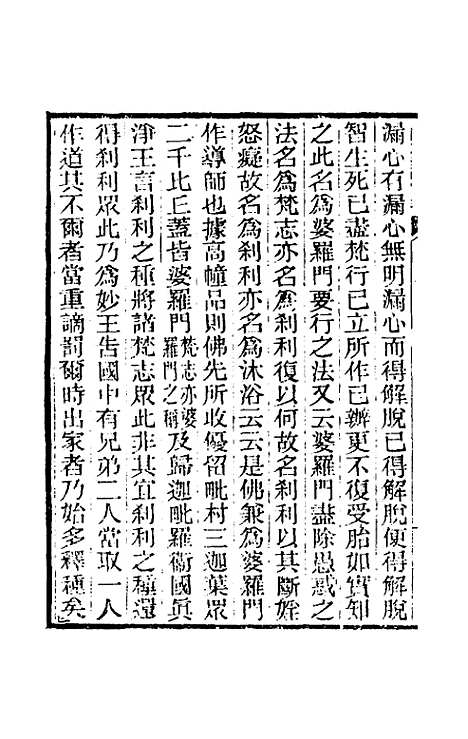 漏心有漏心無明漏心而得解脫已得解脫便得解脫
智生死已盡梵行已立所作已辦更不復受胎如實知
之此名爲婆羅門要行之法又云婆羅門盡除愚惑之
法名爲梵志亦名爲刹利復以何故名刹利以其斷婬
怒癡故名爲刹利亦名爲沐浴云云是佛兼爲婆羅門
作導師也據高幢品則佛先所收優留毗村三迦葉眾
二千比丘蓋皆婆羅門梵志亦婆羅門之稱及歸迦毗羅衞國眞
淨王言刹利之種將諸梵志眾此非其宜刹利之種還
得刹利眾此乃爲妙王告國中有兄弟二人當取一人
作道其不爾者當重謫罰爾時出家者乃始多釋種矣